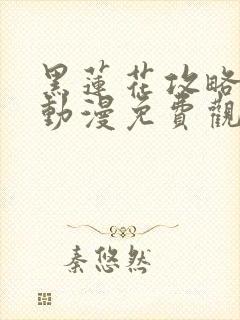 黑蓮花攻略
動漫免費觀
秦悠然